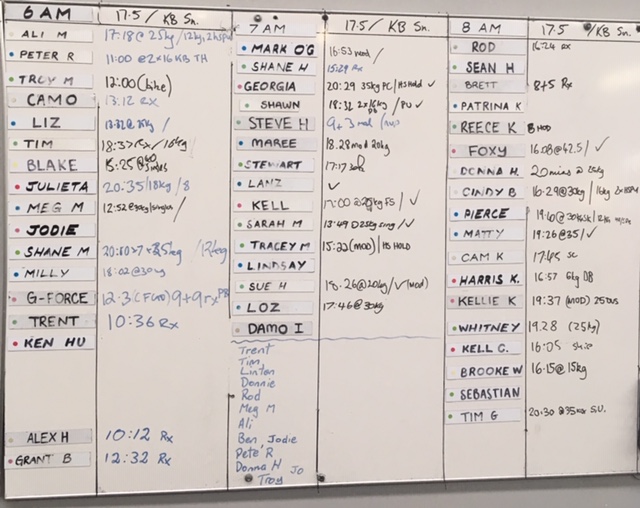 6 AM 17.5 / KB Sn.
ALI M 17:18 @ 25kg / 12kg,
PETER R 11:00 @ 2x16 KB TH
TROY M 12:00 (bike)
CAMO 13:12 RX
LIZ
TIM 18:37
BLAKE 15:25 @ singles
JULIETA 20:35/18kg/8
MEG M 12:52 @ /singles /
JODIE
SHANE M
MILLY 18:02 @ 30kg
G-FORCE 12:3 9+9 rx PB
TRENT 10:36 Rx
KEN HU
ALEX H 10:12 Rx
GRANT B 12:32 Rx
7 AM 17.5 / KB Sn.
MARK O'G 16:53 mod /
SHANE H 15:29 Rx
GEORGIA 20:29 35kg PC / HS Hold ✓
SHAWN 18:32 2x16kg / PU ✓
STEVE H 9+3 mod
MAREE 18.28 mod 20kg
STEWART 17:17
LANZ ✓
KELL 17:00 FS / ✓
SARAH M 13:49 / ✓
TRACEY M 15:23 (MOD) / HS HOLD
LINDSAY
SUE H 18:26 @ 20kg / ✓ (mod)
LOZ 17:46 @ 30kg
DAMO I
Trent
Tim
Linton
Donnie
Rod
Meg M
Ali
Ben, Jodie
Pete R
Donna H Jo
Troy
8 AM 17.5 / KB Sn.
ROD 16:24 RX
SEAN H
BRETT 8+5 Rx
PATRINA K
REECE K MOD
FOXY 16:08 @ 42.5 / ✓
DONNA H 20mins @ 25kg
CINDY B 16:29 @ 30kg / 16kg
PIERCE
MATTY 19:26 @ 35 / ✓
CAM K
HARRIS K. 16:57 6kg DB
KELLIE K 19:37 (MOD)
WHITNEY 19.28 (25kg)
KELL G. 16:05
BROOKE W 16:15 @ 15kg
SEBASTIAN
TIM G 20:30 @ 35kg S.U.